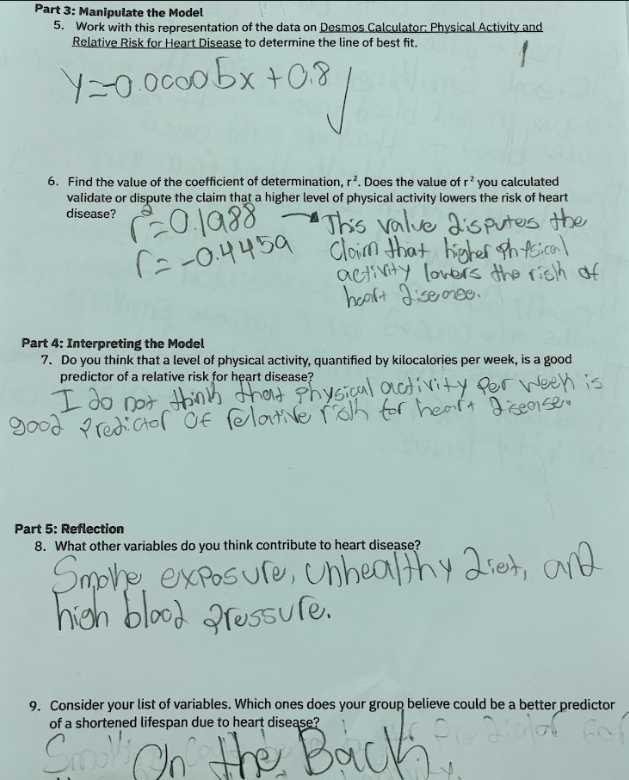 Part 3: Manipulate the Model
5. Work with this representation of the data on Desmos Calculator: Physical Activity and
Relative Risk for Heart Disease to determine the line of best fit.
y=-0.00005x+0.8
6. Find the value of the coefficient of determination, r². Does the value of r² you calculated
validate or dispute the claim that a higher level of physical activity lowers the risk of heart
disease?
r²=0.1988
r=-0.4459
This value disputes the
claim that higher physical
activity lowers the risk of
heart disease.
Part 4: Interpreting the Model
7. Do you think that a level of physical activity, quantified by kilocalories per week, is a good
predictor of a relative risk for heart disease?
I do not think that physical activity per week is
good predictor of relative risk for heart disease.
Part 5: Reflection
8. What other variables do you think contribute to heart disease?
Smoke exposure, unhealthy diet, and
high blood pressure.
9. Consider your list of variables. Which ones does your group believe could be a better predictor
of a shortened lifespan due to heart disease?
On the Back